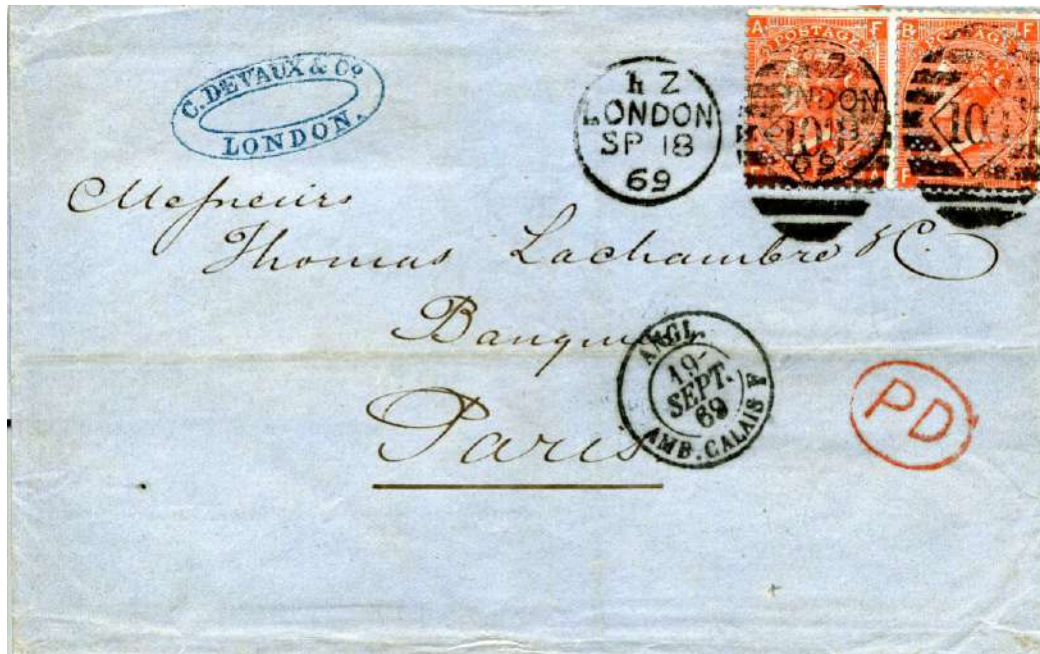 C. DEVAUX & Co
LONDON.
h Z
LONDON
SP 18
69
A F
POSTAGE
Z
LONDON
100
69
A
B F
POSTAGE
100
F
Messieurs
Thomas Lachambre & C.
Banquiers
Paris
ANGL.
19
SEPT.
69
AMB. CALAIS F
PD